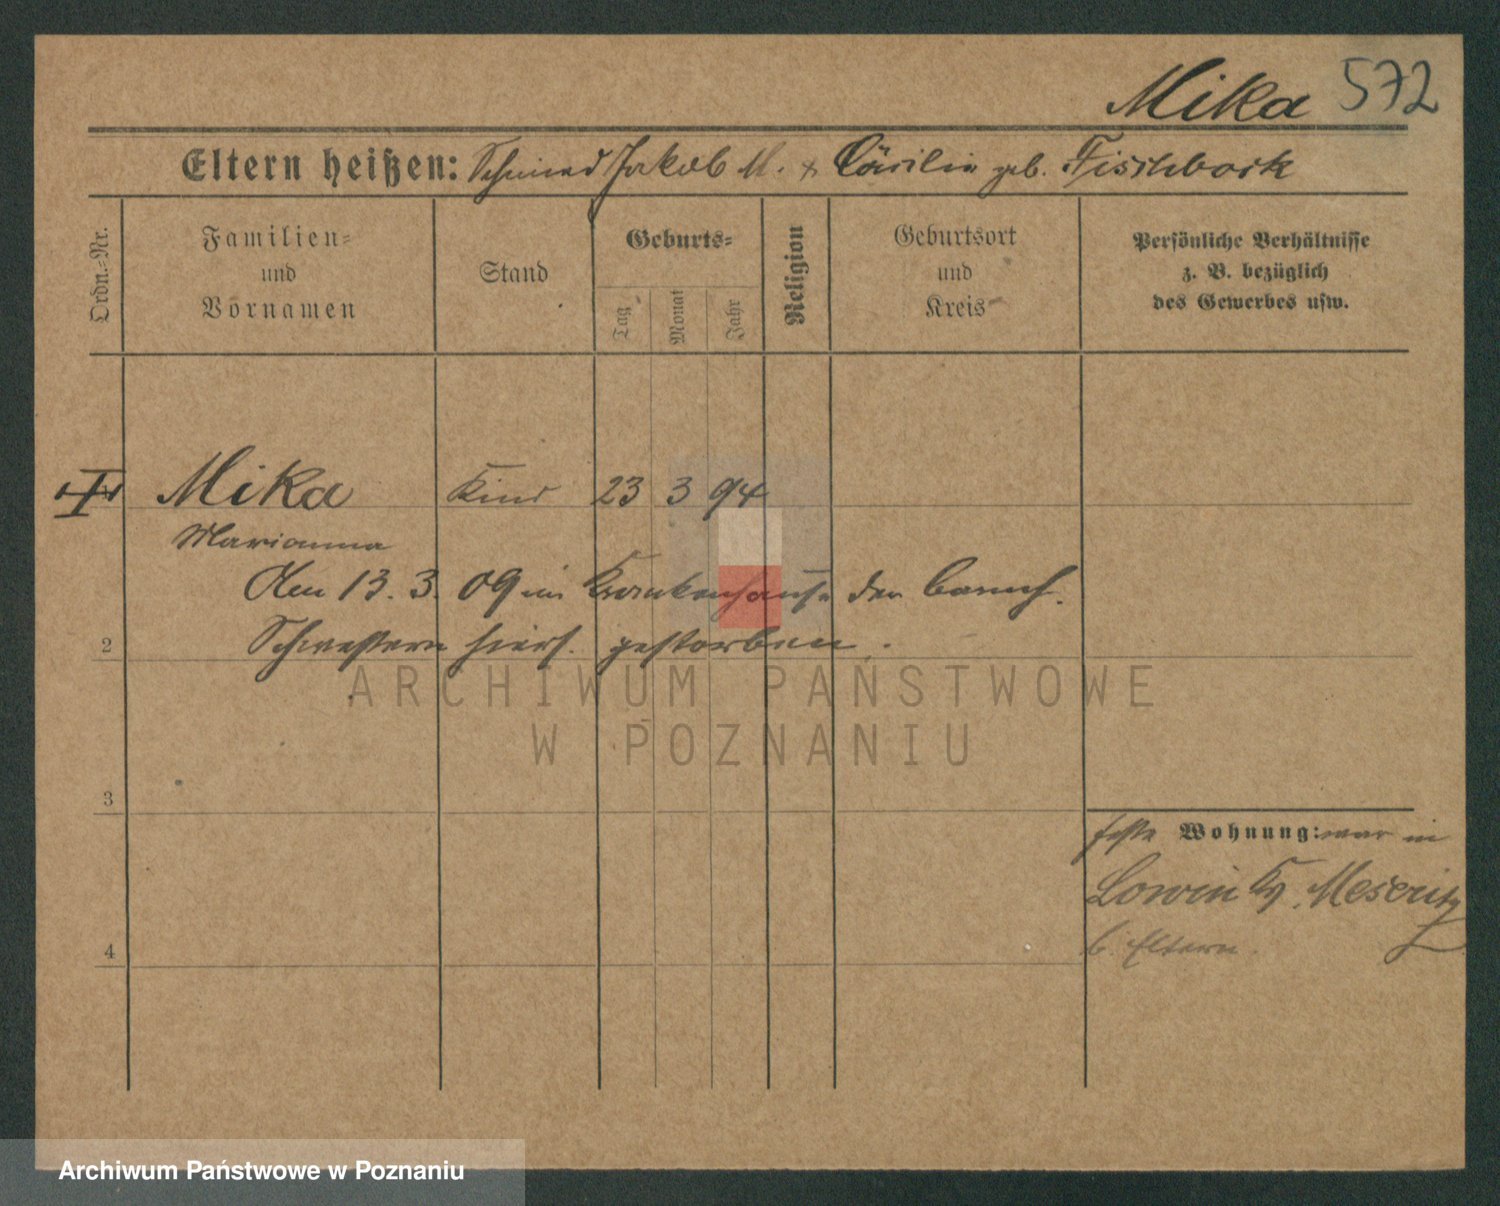 Mika 572
Eltern heißen: Schmied Jakob M. & Cäcilie geb. Fischbock
Ordn.-Nr.
Familien-
und
Vornamen
Stand
Geburts-
Tag
Monat
Jahr
Religion
Geburtsort
und
Kreis
Persönliche Verhältnisse
z. B. bezüglich
des Gewerbes usw.
Mika Kind 23 3 94
Marianna
Den 13. 3. 09 im Krankenhause der barmh.
2 Schwestern hiers. gestorben.
ARCHIWUM PAŃSTWOWE
W POZNANIU
3
feste Wohnung: war in
Lowin Kr. Meseritz
4 b. Eltern.
Archiwum Państwowe w Poznaniu